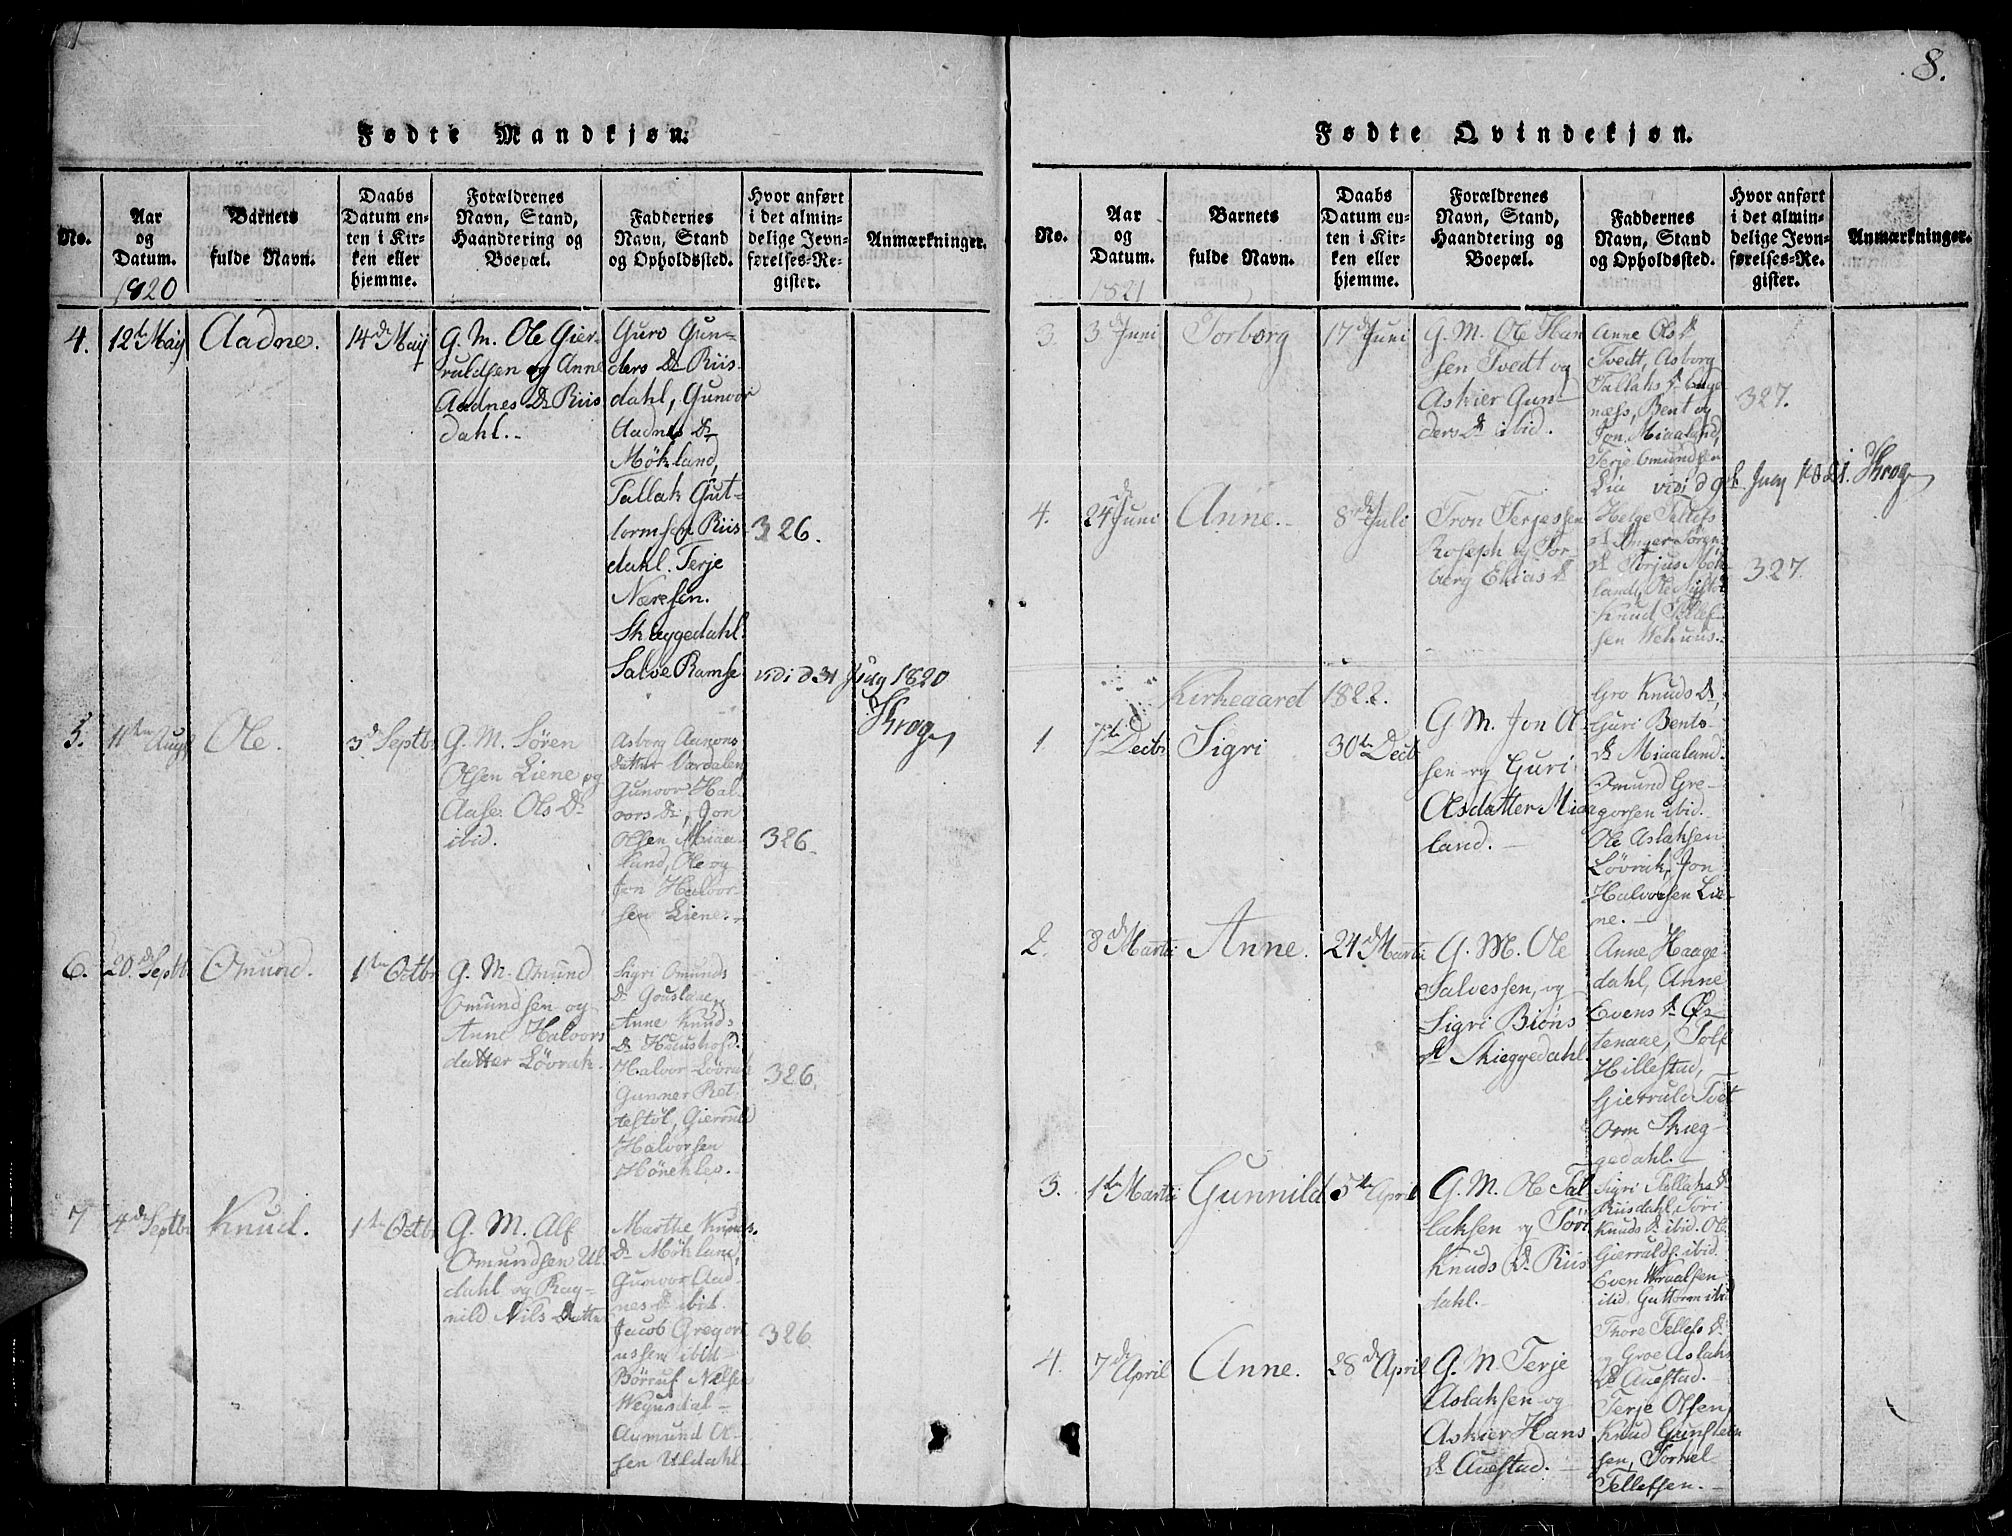 8.
Fødte Mandkjøn.
No.
Aar
og
Datum.
1820
Barnets
fulde Navn.
Daabs
Datum en-
ten i Kir-
ken eller
hjemme.
Forældrenes
Navn, Stand,
Haandtering og
Boepæl.
Faddernes
Navn, Stand
og Opholdssted.
Hvor anført
i det almin-
delige Jevn-
førelses-Re-
gister.
Anmærkninger.
4.
12te May
Aadne.
14de Maij
G. M. Ole Gier-
ruldsen og Anne
Aadnes Dr Riis
dahl.-
Guro Gun-
ders Dr Riis-
dahl, Gunvor
Aadnes Dr
Møkland,
Tallak Gut-
tormsen Riis
dahl. Terje
Næresen.
Skeggedahl.
Salve Ramse
326.
vidi d 31 July 1820
Krog
5.
11te Aug
Ole.
3d Septbr
G. M. Sören
Olsen Liene og
Aase. Ols Dr
ibid.
Asborg Aanons
datter Vordalen
Gunvor Hal-
vors Dr, Jon
Olsen Miaa-
land, Ole og
Jon Halvor-
sen Liene.-
326.
6.
20de Septb
Omund.
1te Octbr
G. M. Omund
Omundsen og
Anne Halvors
datter Lövrak.
Sigri Omunds
Dr Gouslaae,
Anne Knuds
Dr
Halvor Lövrak
Gunner Ret
testöl, Gierruld
Halvorsen
Hönehlev.
326.
7
4de Septbr
Knud.
1te Octbr
G. M. Alf
Omundsen Ul-
dahl og Rag-
nild Nils Datter
Marthe Knuds.
Dr Mökland,
Gunvor Aad
nes Dr ibid.
Jacob Gregor
iussen ibid
Börruf Nilsen
Wegusdal-
Aamund O-
sen Uldahl
326.
Fødte Qvindekjøn.
No.
Aar
og
Datum.
1821
Barnets
fulde Navn.
Daabs
Datum en-
ten i Kir-
ken eller
hjemme.
Forældrenes
Navn, Stand,
Haandtering og
Boepæl.
Faddernes
Navn, Stand
og Opholdssted.
Hvor anført
i det almin-
delige Jevn-
førelses-Re-
gister.
Anmærkninger.
3.
3de Juni
Torborg
17de Juni
G. M. Ole Han
sen Tvedt og
Askier Gun-
ders Dr ibid.
Anne Ols Dr
Tvedt, Asborg
Tallaks Dr
næss, Bent og
Jon Miaaland,
Terje Omundsen
Lia
327.
vidi d 9de July 1821. Krog
4.
24de Juni
Anne.-
8de Juli
Tron Terjessen
Roseph og Tor-
berg Elias Dr
Helge Tellefs
Dr Sören
Dr Torjus Møk
land, Ole
Knud Tellef-
sen Wehuus.
327.
Kirkegaard 1822.
1
7te Decbr
Sigri
30te Decb
G M. Jon Ol-
sen og Guri
Olsdatter Miaa
land.-
Gro Knuds Dr,
Guri Bents-
Dr Miaaland.
Omund Gre-
gorsen ibid.
Ole Aslaksen
Lövrak, Jon
Halvorsen Lie-
ne.-
2.
8de Martii
Anne.
24de Martii
G. M. Ole
Salvessen, og
Sigri Biöns
Dr Skieggedahl.
Anne Haage-
dahl, Anne
Evens Dr Øs
tenaae, Tolf
Hillestad,
Gierruld Tvet
Orm Skieg-
gedahl.-
3.
1te Martii
Gunnild
5te April
G. M. Ole Tal
laksen og Töri
Knuds Dr Riis
dahl.-
Sigri Tellahs Dr
Riisdahl, Töri
Knuds Dr ibid. Ole
Gierralds. ibid.
Even
ibid, Guttorm ibid
4.
7de April
Anne.
28de April
G. M. Terje
Aslaksen og
Askier Hans
Dr Auestad.-
Thore Tellefs Dr
og Groe Aslaks
Dr Auestad.
Terje Olsen,
Knud Gunstein
sen, Torkel
Tellefsen.-